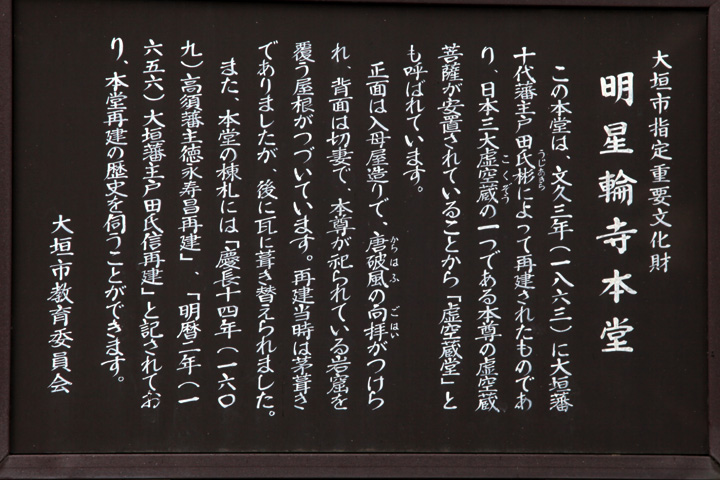 大垣市指定重要文化財
明星輪寺本堂
この本堂は、文久三年(一八六三)に大垣藩
十代藩主戸田氏彬によって再建されたものであ
うじあきら
り、日本三大虚空蔵の一つである本尊の虚空蔵
こくぞう
菩薩が安置されていることから「虚空蔵堂」と
も呼ばれています。
正面は入母屋造りで、唐破風の向拝がつけら
からはふ
ごはい
れ、背面は切妻で、本尊が祀られている岩窟を
覆う屋根がつづいています。再建当時は茅葺き
でありましたが、後に瓦に葺き替えられました。
また、本堂の棟札には「慶長十四年(一六〇
九)高須藩主徳永寿昌再建」、「明暦二年(一
六五六)大垣藩主戸田氏信再建」と記されてお
り、本堂再建の歴史を伺うことができます。
大垣市教育委員会